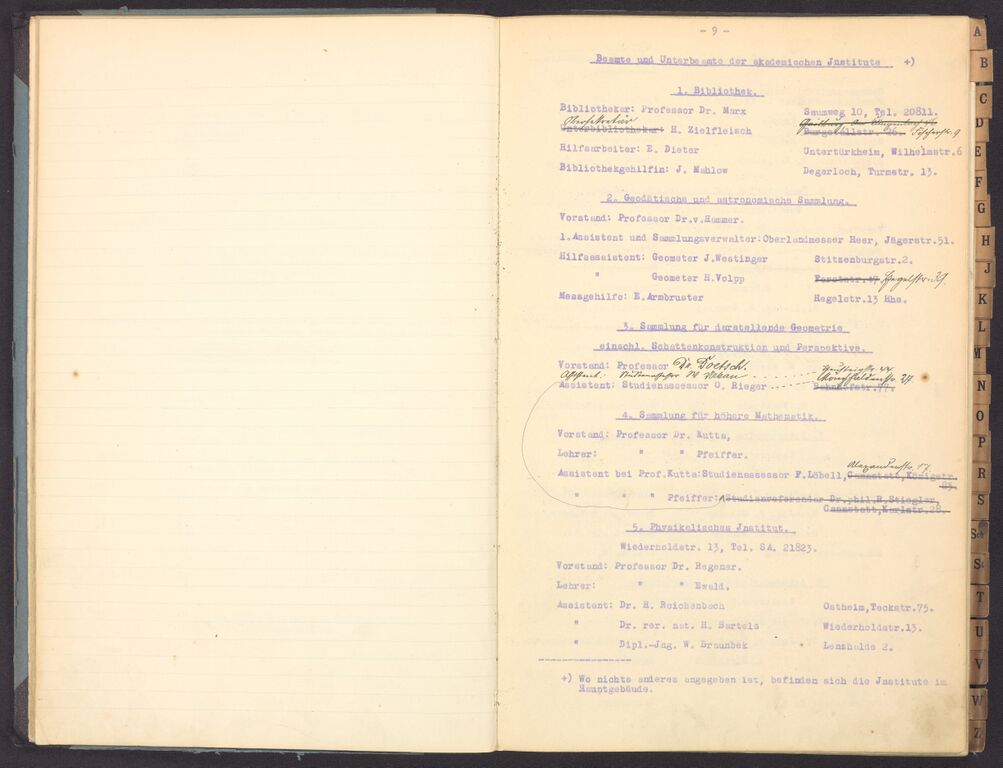 - 9 -
Beamte und Unterbeamte der akademischen Jnstitute +)
1. Bibliothek.
Bibliothekar: Professor Dr. Marx Saumweg 10, Tel. 20811.
Obersekretär
Unterbibliothekar: H. Zielfleisch Burgstallstr. 26. Fischerstr. 9
Hilfsarbeiter: E. Dieter Untertürkheim, Wilhelmstr.6
Bibliothekgehilfin: J. Mahlow Degerloch, Turmstr. 13.
2. Geodätische und astronomische Sammlung.
Vorstand: Professor Dr.v.Hammer.
1.Assistent und Sammlungsverwalter:Oberlandmesser Heer, Jägerstr.51.
Hilfsassistent: Geometer J.Westinger Stitzenburgstr.2.
" Geometer H.Volpp Forststr. Hegelstr. 39.
Messgehilfe: E.Armbruster Hegelstr.13 Hhs.
3. Sammlung für darstellende Geometrie
einschl. Schattenkonstruktion und Perspektive.
Vorstand: Professor Dr. Doetsch.
Assistent:
Assistent: Studienassessor O. Rieger Bahnhofstr.77.
4. Sammlung für höhere Mathematik.
Vorstand: Professor Dr. Kutta,
Lehrer: " " Pfeiffer.
Alexanderstr. 17.
Assistent bei Prof.Kutta:Studienassessor F.Löbell, Cannstatt,Königstr.
" " " Pfeiffer: Studienreferendar Dr.phil.R.Stiegler,
Cannstatt,Karlstr.28.
5. Physikalisches Jnstitut.
Wiederholdstr. 13, Tel. SA. 21823.
Vorstand: Professor Dr. Regener.
Lehrer: " " Ewald.
Assistent: Dr. H. Reichenbach Ostheim,Teckstr.75.
" Dr. rer. nat. H. Bartels Wiederholdstr.13.
" Dipl.-Jng. W. Braunbek Lenzhalde 2.
+) Wo nichts anderes angegeben ist, befinden sich die Jnstitute im
Hauptgebäude.
A
B
C
D
E
F
G
H
J
K
L
M
N
O
P
R
S
Sch
St
T
U
V
W
Z